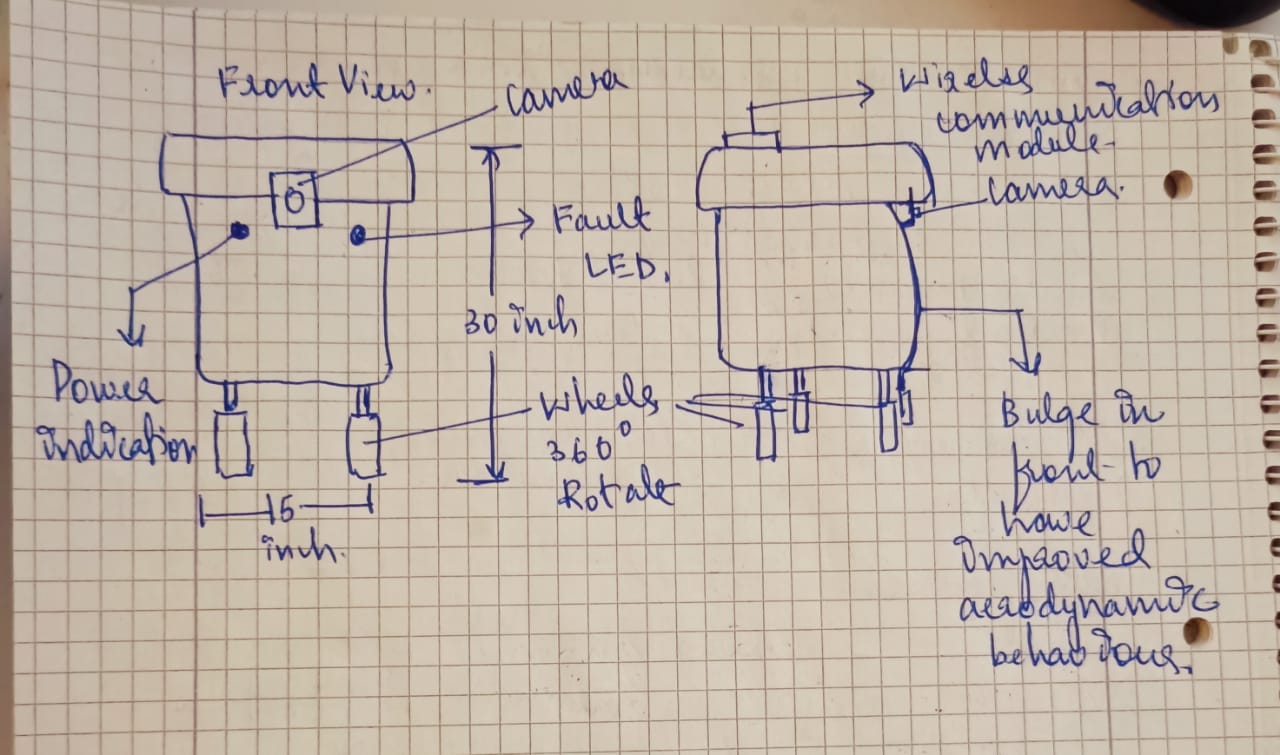 Front View.
camera
Fault
LED.
30 inch
Power
indication
Wheels
360°
Rotate
15
inch.
Wireless
communication
module
camera.
Bulge in
front to
have
Improved
aerodynamic
behaviour.